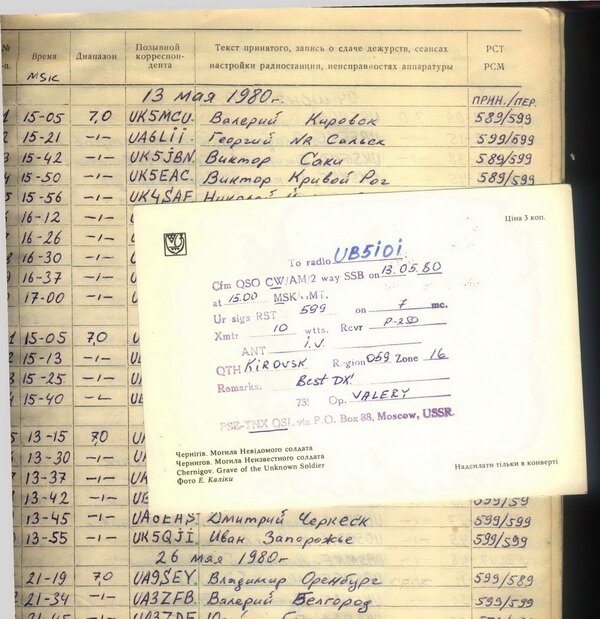 № Время Диапазон Позывной корреспон- Текст принятого, запись о сдаче дежурств, сеансах РСТ
п. дента настройки радиостанции, неисправностях аппаратуры РСМ
MSK
13 мая 1980г. ПРИН./ПЕР.
15-05 7,0 UK5MCU Валерий Кировск 589/599
15-21 -ı- UA6Lii Георгий NR Сальск 599/599
3 15-42 -ı- UK5JBN Виктор Саки 589/599
4 15-50 -ı- UK5EAC Виктор Кривой Рог 589/599
15-56 -ı- UK4SAF Николай
16-12 -ı-
16-26 -ı-
16-30 -ı-
16-37 -ı-
17-00 -ı-
15-05 7,0
15-13 -ı-
15-25 -ı-
15-40 -ı-
13-15 7,0
13-30 -ı-
13-37 -ı-
13-42 -ı-
13-45 -ı- UA6EHS Дмитрий Черкеск 599/599
13-55 -ı- UK5QJi Иван Запорожье 599/599
26 мая 1980г
21-19 7,0 UA9SEY Владимир Оренбург 599/589
21-34 -ı- UA3ZFB Валерий Белгород 599/599
Ціна 3 коп.
To radio UB5iOi
Cfm QSO CW/AM/2 way SSB on 13.05.80
at 15.00 MSK GMT.
Ur sigs RST 599 on 7 mc.
Xmtr 10 wtts. Rcvr P-250
ANT i.V.
QTH KiROVSK Region 059 Zone 16
Remarks: Best DX!
73! Op. VALERY
PSE-TNX QSL via P.O. Box 88, Moscow, USSR.
Чернігів. Могила Невідомого солдата
Чернигов. Могила Неизвестного солдата
Chernigov. Grave of the Unknown Soldier
Фото Е. Каліки
Надсилати тільки в конверті